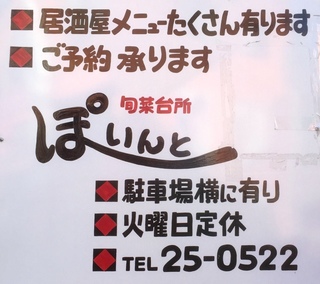 居酒屋メニューたくさん有ります
ご予約 承ります
旬菜台所
ぽいんと
駐車場横に有り
火曜日定休
TEL 25-0522